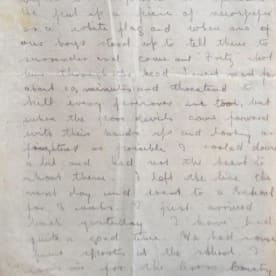 he put up a piece of newspaper
on a white flag and when one of
our boys stood up to tell them to
surrender and come out Fritz shot
him through the head I went mad for
about 10 minutes and threatened to
kill every prisoner we took but
when the poor devils came forward
with their hands up and looking as
frightened as possible I cooled down
a bit and had not the heart to
shoot them I left the line the
next day and went to a School
for 3 weeks I just arrived
back yesterday I have had
quite a good time We had some
sports at the school
for the Cross Country